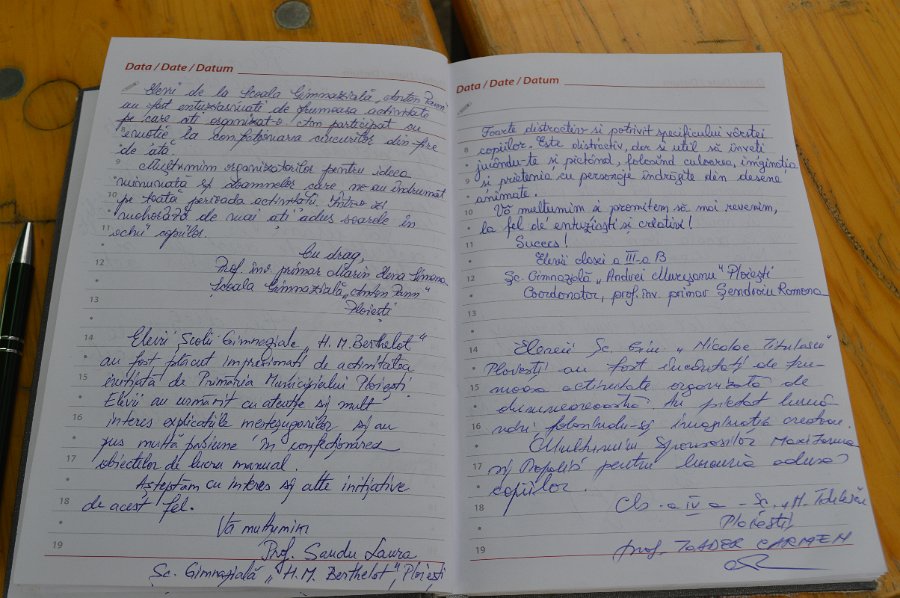 Data / Date / Datum
Elevii de la Școala Gimnazială „Anton Pann”
au fost entuziasmați de frumoasa activitate
pe care ati organizat-o. Am participat cu
emoție la confecționarea ciucurilor din fire
de ață.
Mulțumim organizatorilor pentru ideea
minunată și doamnelor care ne-au îndrumat
pe toată perioada activității. Într-o zi
mohorâtă de mai ați adus soarele în
ochii copiilor.
Cu drag,
Prof. înv. primar Marin Elena Simona
Școala Gimnazială „Anton Pann”
Ploiești
Elevii Școlii Gimnaziale „H. M. Berthelot”
au fost plăcut impresionați de activitatea
inițiată de Primăria Municipiului Ploiești.
Elevii au urmărit cu atenție și mult
interes explicațiile meșteșugarilor și au
pus multă pasiune în confecționarea
obiectelor de lucru manual.
Așteptăm cu interes și alte inițiative
de acest fel.
Vă mulțumim
Prof. Sandu Laura
Șc. Gimnazială „H. M. Berthelot”, Ploiești
8
9
10
11
12
13
14
15
16
17
18
19
Data / Date / Datum
Foarte distractiv si potrivit specificului vârstei
copiilor. Este distractiv, dar si util să înveti
jucându-te si pictând, folosind culoarea, imaginația
si prietenia cu personaje îndrăgite din desene
animate.
Vă multumim si promitem să mai revenim,
la fel de entuziaști și creativi!
Succes!
Elevii clasei a III-a B
Șc. Gimnazială „Andrei Mureșanu” Ploiești
Coordonator, prof. înv. primar Șendroiu Ramona
Elevii Șc. Gim. „Nicolae Titulescu”
Ploiești au fost încântați de fru-
moasa activitate organizată de
dumneavoastră. Au pictat
folosindu-și imaginația creatoare.
Mulțumim sponsorilor
și pentru bucuria adusă
copiilor.
Cls. a IV a - Șc. „N. Titulescu
Ploiești
prof. TOADER CARMEN
8
9
10
11
12
13
14
15
16
17
18
19